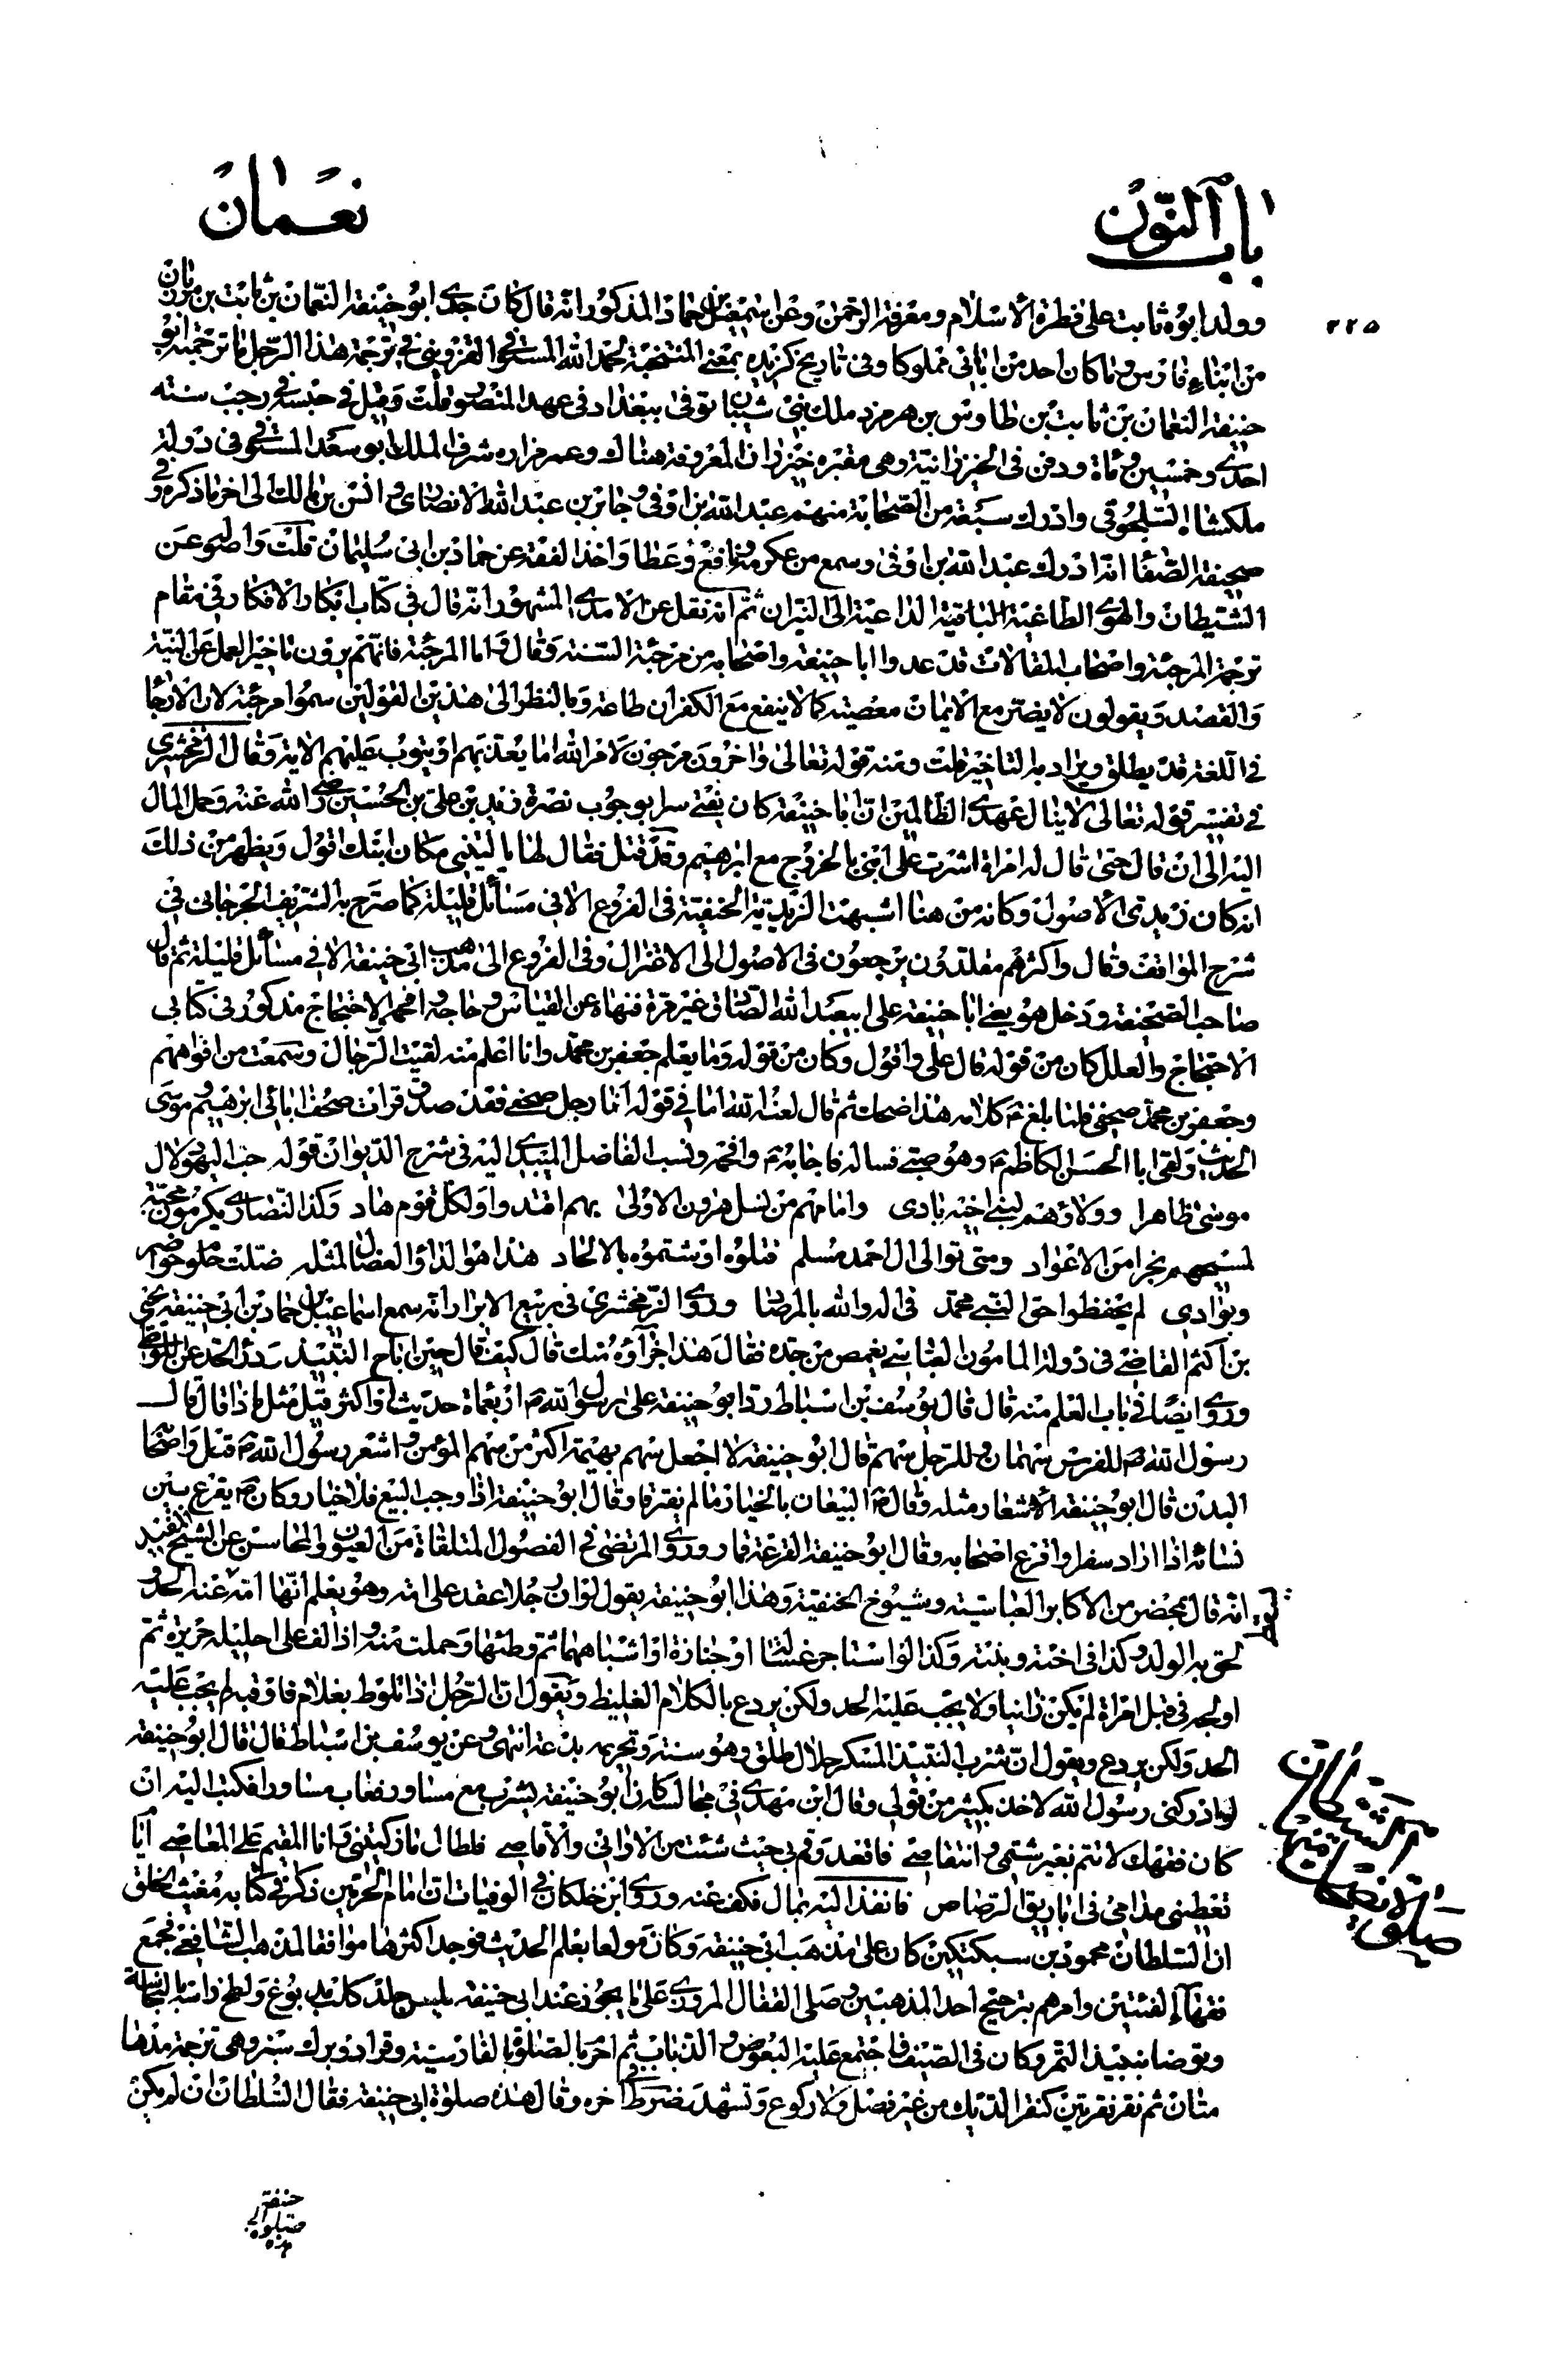 باب النون
نعمان
٢٢٥
وولد ابوه ثابت على فطرة الاسلام ومعرفة الرحمن وعن اسمعيل بن حماد المذكور انه قال كان جدى ابو حنيفة النعمان بن ثابت بن مرزبان
من ابناء فارس وما كان احد من ابائى مملوكا وفى تاريخ كزيده بمعنى المنتخبة لحمد الله المستوفى القزوينى فى ترجمة هذا الرجل ما ترجمته ابو
حنيفة النعمان بن ثابت بن طاوس بن هرمزد ملك بنى شيبان توفى ببغداد فى عهد المنصور قلت وقيل فى حبسه فى رجب سنته
احدى وخمسين ومأة ودفن فى الخيزرانية وهى مقبره خيزران المعروفة هناك وعمر مزاره شرف الملك ابو سعد المستوفى فى دولة
ملكشاه السلجوقى وادرك سبعة من الصحابة منهم عبد الله بن اوفى وجابر بن عبد الله الانصارى وانس بن مالك الى اخر ما ذكره وفى
صحيفة الصفا انه ادرك عبد الله بن اوفى وسمع من عكرمة ونافع وعطا واخذ الفقه عن حماد بن ابى سليمان قلت واصله عن
الشيطان والهوى الطاغية الباقية الداعية الى النيران ثم انه نقل عن الامدى المشهور انه قال فى كتاب ابكار الافكار فى مقام
ترجمة المرجئة واصحاب المقالات قد عدوا ابا حنيفة واصحابه من مرجئة السنة وقال واما المرجئة فانهم يرون تاخير العمل عن النية
والقصد ويقولون لا يضر مع الايمان معصية كما لا ينفع مع الكفران طاعة وبالنظر الى هذين القولين سموا مرجئة لان الارجا
فى اللغة قد يطلق ويراد به التاخير قلت ومنه قوله تعالى واخرون مرجون لامر الله اما يعذبهم او يتوب عليهم الاية وقال الزمخشرى
فى تفسير قوله تعالى لا ينال عهدى الظالمين ان ابا حنيفة كان يفتى سرا بوجوب نصرة زيد بن على بن الحسين رضى الله عنه وحمل المال
اليه الى ان قال حتى قال له امراة اشرت على ابنى بالخروج مع ابرهيم وقد قتل فقال لها يا ليتنى مكان ابنك اقول ويظهر من ذلك
انه كان زيدى الاصول وكانه من هنا اشبهت الزيدية الحنفية فى الفروع الا فى مسائل قليلة كما صرح به الشريف الجرجانى فى
شرح المواقف وقال واكثرهم مقلدون يرجعون فى الاصول الى الاعتزال وفى الفروع الى مذهب ابى حنيفة الا فى مسائل قليلة ثم قال
صاحب الصحيفة ودخل هو يعنى ابا حنيفة على ابيعبد الله الصادق غير مرة فنهاه عن القياس وحاجه وافحمه الاحتجاج مذكور فى كتابى
الاحتجاج والعلل كان من قوله قال على واقول وكان من قوله وما يعلم جعفر بن محمد وانا اعلم منه لقيت الرجال وسمعت من افواههم
وجعفر بن محمد صحفى فلما بلغه كلامه هذا ضحك ثم قال لعنه الله اما فى قوله انما رجل صحفى فقد صدق قرات صحف ابائى ابرهيم وموسى
الحديث ولقى ابا الحسن الكاظم وهو صبى فساله فاجابه وافحمه ونسب الفاضل الميبدى اليه فى شرح الديوان قوله حب اليهود لال
موسى ظاهرا وولاؤهم لبنى اخيه بادى وامامهم من نسل هرون الاولى بهم اقتدوا ولكل قوم هاد وكذا النصارى يكرمون محبة
لمسيحهم نجرا من الاعواد ومتى توالى ال احمد مسلم قتلوه او شتموه بالالحاد هذا هو الداء العضال لمثله ضلت حلوم حواضر
وبوادى لم يحفظوا حق النبى محمد فى اله والله بالمرصاد وروى الزمخشرى فى ربيع الابرار انه سمع اسماعيل بن حماد بن ابى حنيفة يحيى
بن اكثم القاضى فى دولة المامون العباسى يغمص من جده فقال هذا جزاؤه منك قال كيف قال حين اباح النبيذ ودرئ الحد عن اللوطى
وروى ايضا فى باب العلم منه قال قال يوسف بن اسباط رد ابو حنيفة على رسول الله ص اربعماة حديث او اكثر قيل مثل ماذا قال قال
رسول الله ص للفرس سهمان وللرجل سهم قال ابو حنيفة لا اجعل سهم بهيمة اكثر من سهم المؤمن واشعر رسول الله ص قتل واصحابه
البدن قال ابو حنيفة الاشعار مثله وقال ص البيعان بالخيار ما لم يفترقا وقال ابو حنيفة اذا وجب البيع فلا خيار وكان ص يقرع بين
نسائه اذا اراد سفرا واقرع اصحابه وقال ابو حنيفة القرعة قمار وروى المرتضى فى الفصول المتلقاة من العيون والمحاسن عن الشيخ المفيد
انه قال بمحضر من الاكابر العباسيته وشيوخ الحنفية وهذا ابو حنيفة يقول لو ان رجلا عقد على امه وهو يعلم انها امه سقط عنه الحد و
لحق به الولد وكذا فى اخته وبنته وكذا لو استاجر غسالة او خبازة او اشباههما ثم وطئها وحملت منه واذا لف على احليله حريره ثم
اولجه فى قبل امراة لم يكن زانيا ولا يجب عليه الحد ولكن يردع بالكلام الغليظ ويقول ان الرجل اذا تلوط بغلام فاوقبه لم يجب عليه
الحد ولكن يردع ويقول ان شرب النبيذ المسكر حلال طلق وهو سنة وتحريمه بدعة انتهى وعن يوسف بن اسباط قال قال ابو حنيفة
لو ادركنى رسول الله لاخذ بكثير من قولى وقال ابن مهدى فى مجالسه كان ابو حنيفة يشرب مع مساور فعاب مساورا فكتب اليه ان
كان فقهك لا تتم بغير شتمى وانتقاصى فاقعد وقم بى حيث شئت من الادانى والاقاصى فلطال ما زكيتنى وانا المقيم على المعاصى ايا
تعطينى مدامى فى اباريق الرصاص فانفذ اليه بمال فكف عنه وروى ابن خلكان فى الوفيات ان امام الحرمين ذكر فى كتابه مغيث الخلق
ان السلطان محمود بن سبكتكين كان على مذهب ابى حنيفة وكان مولعا بعلم الحديث فوجد اكثرها موافقا لمذهب الشافعى فجمع
فقهاء الفئتين وامرهم بترجيح احد المذهبين وصلى القفال المروزى على ما يجوز عند ابى حنيفة بلبس جلد كلب مدبوغ ولطخ راسه بالنجاسة
وتوضا بنبيذ التمر وكان فى الصيف فاجتمع عليه البعوض والذباب ثم احرم بالصلوة بالفارسية وقرا دو برك سبز وهى ترجمة مدها
متان ثم نقر نقرتين كنقر الديك من غير فصل ولا ركوع وتشهد وضرط فى اخره وقال هذه صلوة ابى حنيفة فقال السلطان ان لم يكن